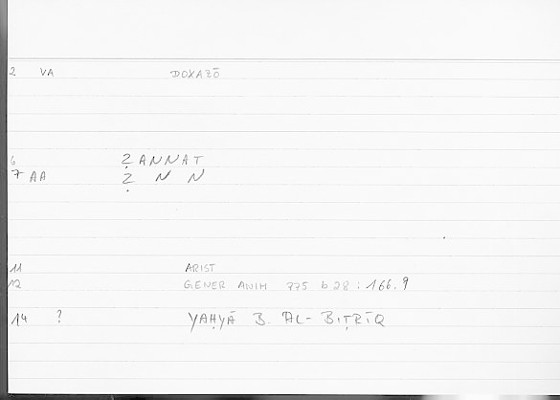 2 VA DOXAZŌ
6 ẒANNAT
7 AA Ẓ N N
11 ARIST
12 GENER ANIM 775 b 28 : 166.9
14 ? YAḤYĀ B. AL-BIṬRĪQ